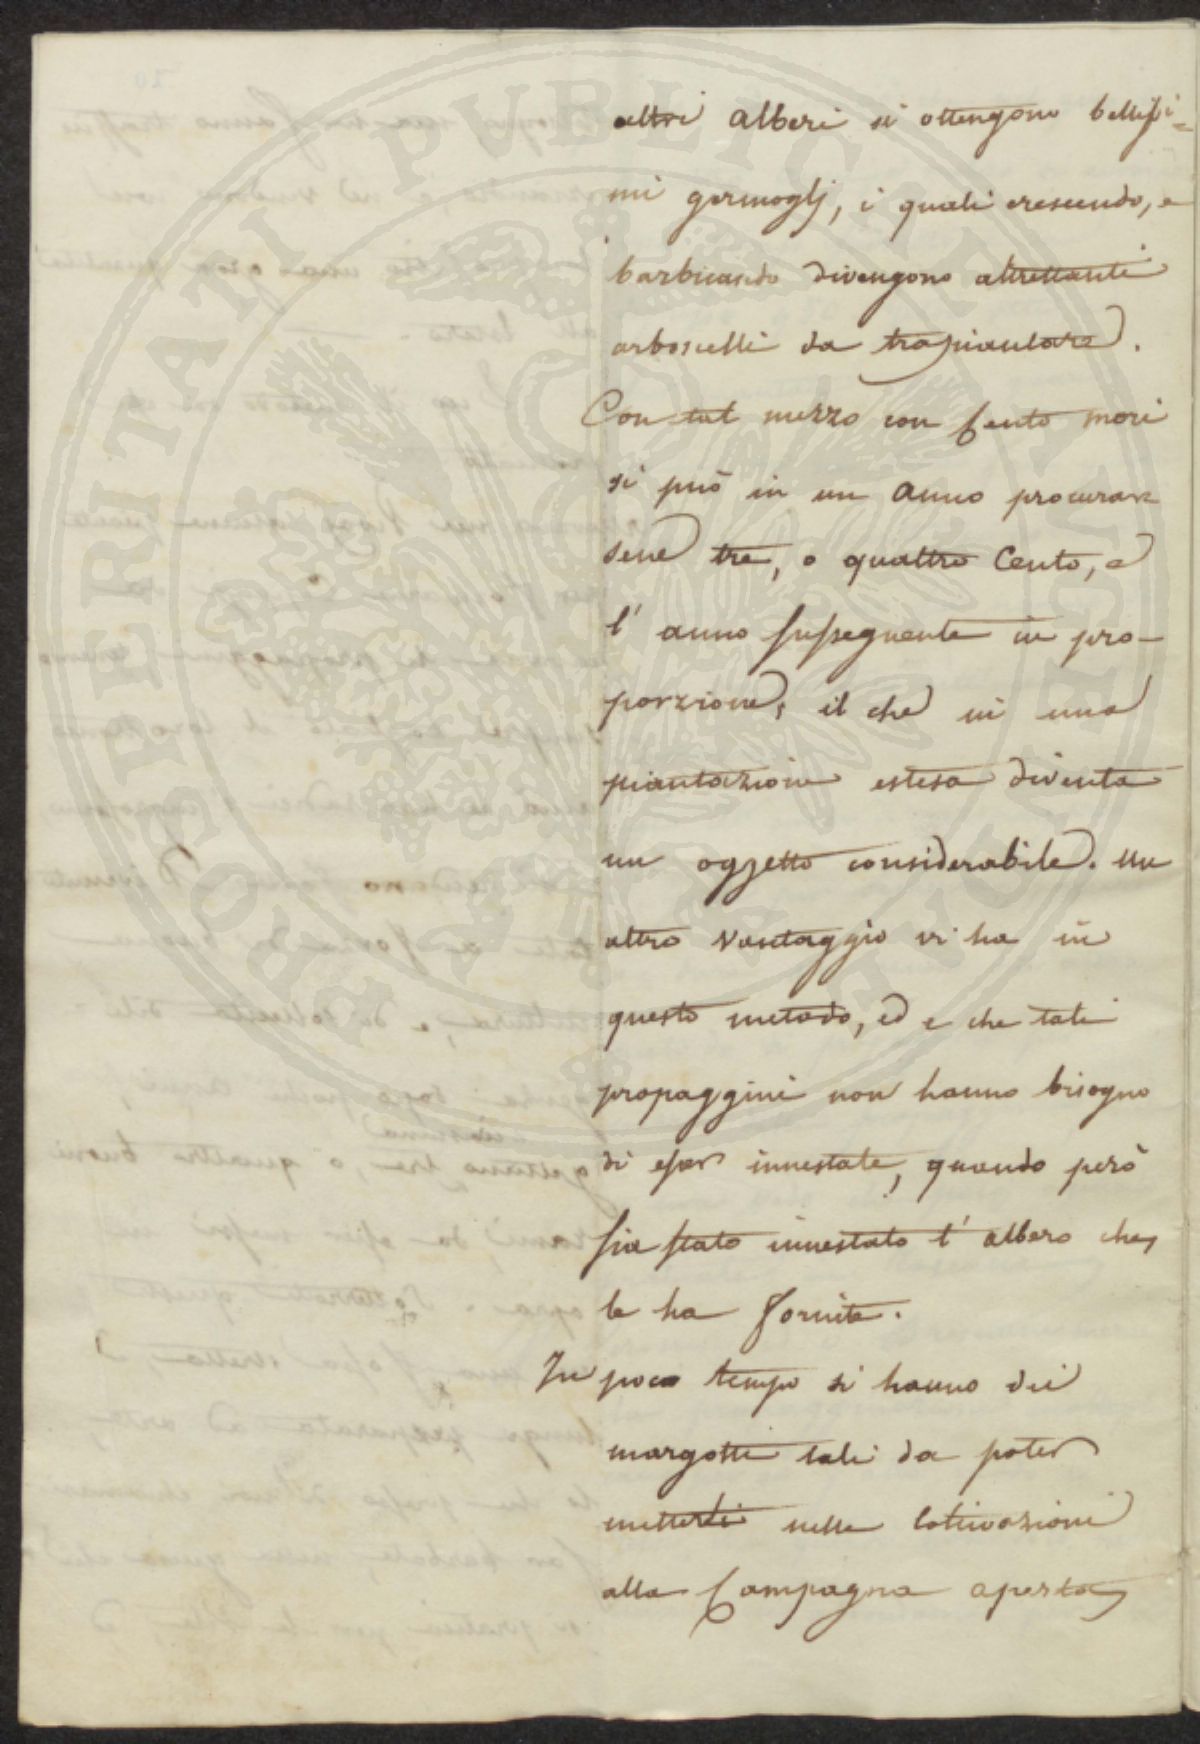 altri alberi si ottengono bellissi=
mi germoglj, i quali crescendo, e
barbicando divengono altrettanti
arboscelli da trapiantare.
Con tal mezzo con Cento mori
si può in un anno procurar
sene tre, o quattro Cento, e
l' anno susseguente in pro-
porzione, il che in una
piantazione estesa diventa
un oggetto considerabile. Un
altro vantaggio vi ha in
questo metodo, ed e che tali
propaggini non hanno bisogno
di esser innestate, quando però
sia stato innestato l' albero che
le ha fornite.
In poco tempo si hanno dei
margotti tali da poter
metterli nelle Coltivazioni
alla Campagna aperta
PROSPERITATI PUBLICAE AUGENDAE